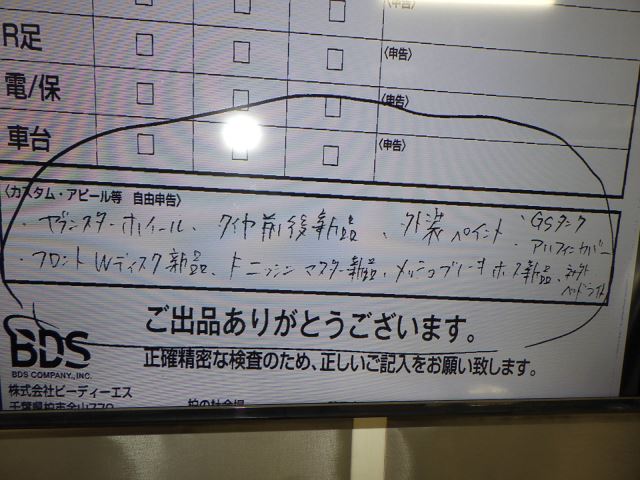 〈申告〉
R足 □ □ □ 〈申告〉
電/保 □ □ □ 〈申告〉
車台 □ □ □ 〈申告〉
〈カスタム・アピール等 自由申告〉
・ゼファスターホイール、タイヤ前後新品、外装ペイント、GSタンク
・アルフィンカバー
・フロントWディスク新品、ニッシンマスター新品、メッシュブレーキホース新品、社外
ヘッドライト
ご出品ありがとうございます。
BDS
正確精密な検査のため、正しいご記入をお願い致します。
BDS COMPANY.,INC.
株式会社ビーディーエス
千葉県柏市金山770